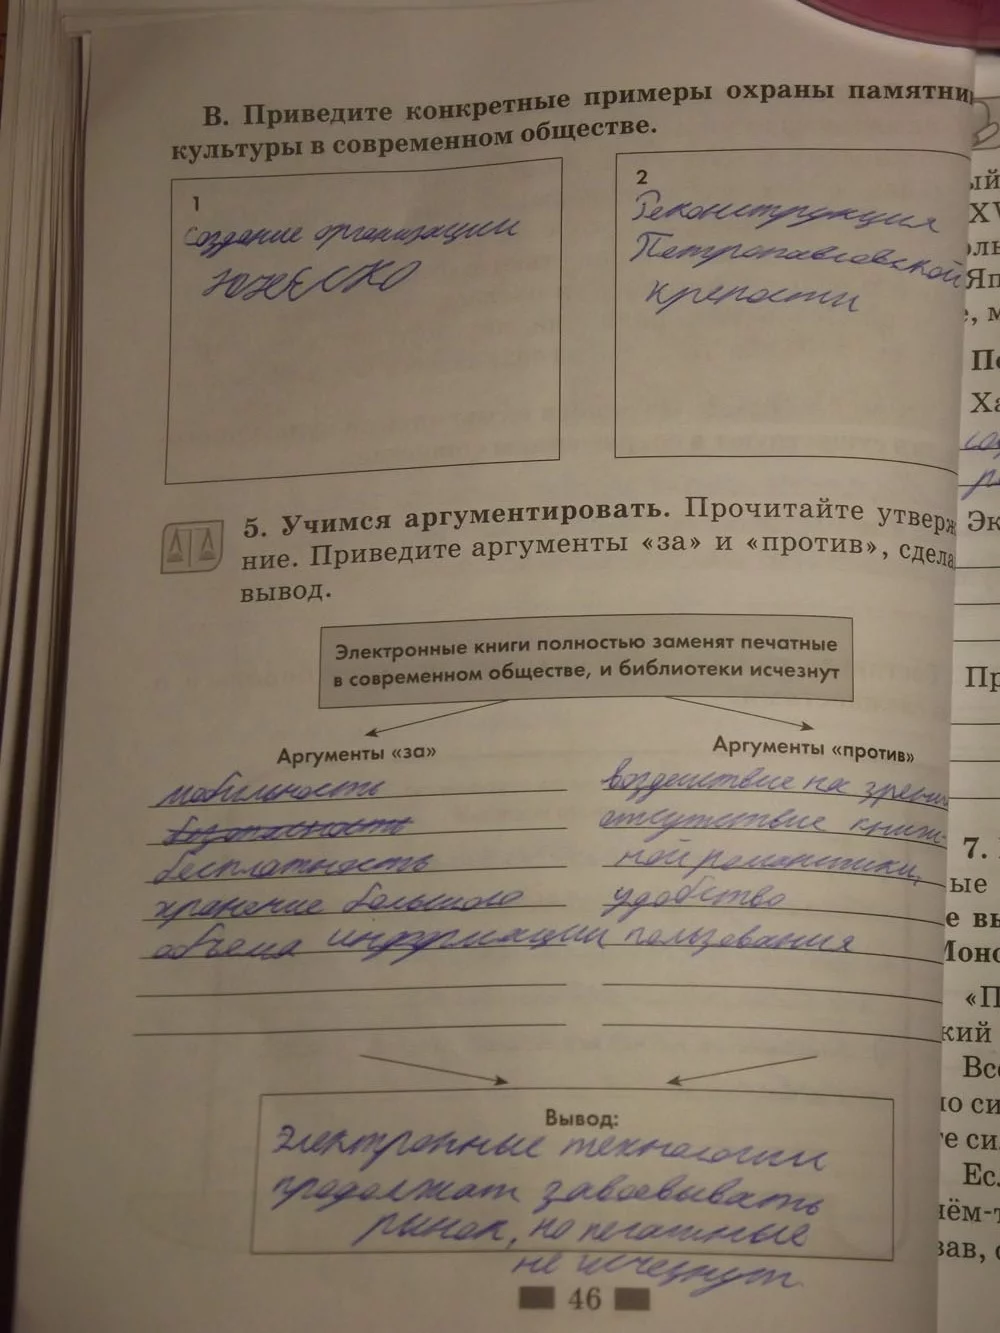 В. Приведите конкретные примеры охраны памятни
культуры в современном обществе.
1
создание организации
ЮНЕСКО
2
Реконструкция
Петропавловской
крепости
5. Учимся аргументировать. Прочитайте утверж
ние. Приведите аргументы «за» и «против», сдела
вывод.
Электронные книги полностью заменят печатные
в современном обществе, и библиотеки исчезнут
Аргументы «за»
мобильность
безопасность
бесплатность
хранение большого
объёма информации
Аргументы «против»
воздействие на зрение
отсутствие книж-
ной романтики,
удобство
пользования
Вывод:
Электронные технологии
продолжат завоёвывать
рынок, но печатные
не исчезнут
46
ый
XV
оль
Яп
е, м
По
Ха
Эк
Пр
7.
ые
е вы
Моно
«П
кий
Все
о си
е си
Есл
чём-т
зав, с